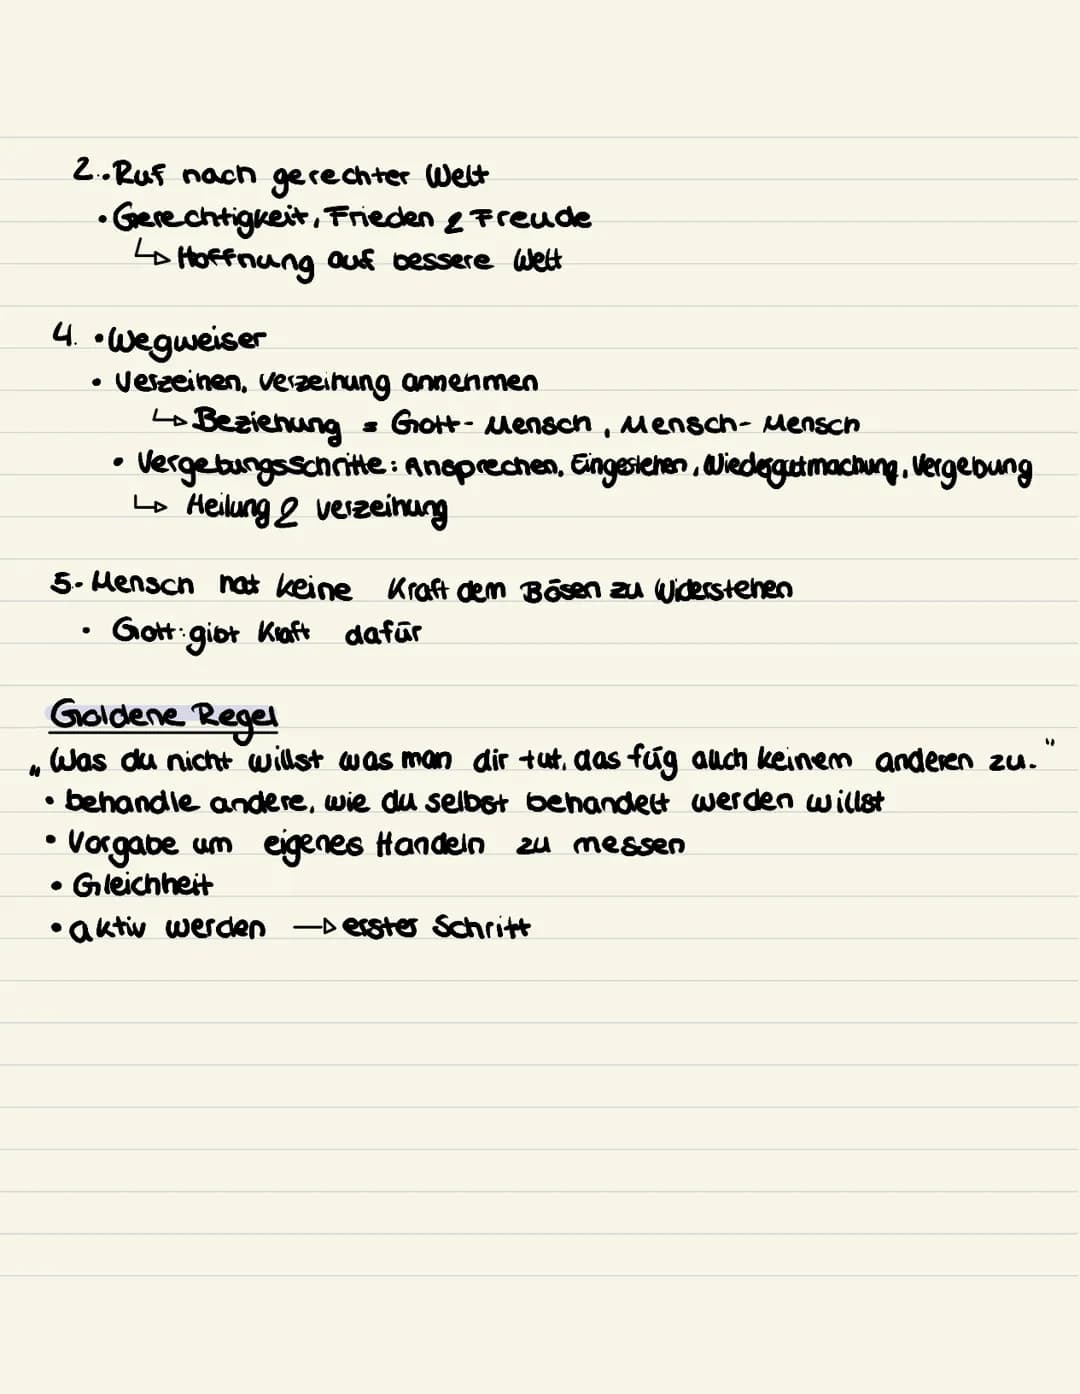 2.•Ruf nach gerechter Welt
•Gerechtigkeit, Frieden & Freude
↳ Hoffnung auf bessere Welt
4. •Wegweiser
• Verzeihen, Verzeihung annehmen
↳ Beziehung = Gott-Mensch, Mensch-Mensch
• Vergebungsschritte: Ansprechen, Eingestehen, Wiedergutmachung, Vergebung
↳ Heilung & verzeihung
5.• Mensch hat keine Kraft dem Bösen zu Widerstehen
• Gott: gibt Kraft dafür
Goldene Regel
„Was du nicht willst was man dir tut, das füg auch keinem anderen zu."
• behandle andere, wie du selbst behandelt werden willst
• Vorgabe um eigenes Handeln zu messen
• Gleichheit
• aktiv werden → erster Schritt